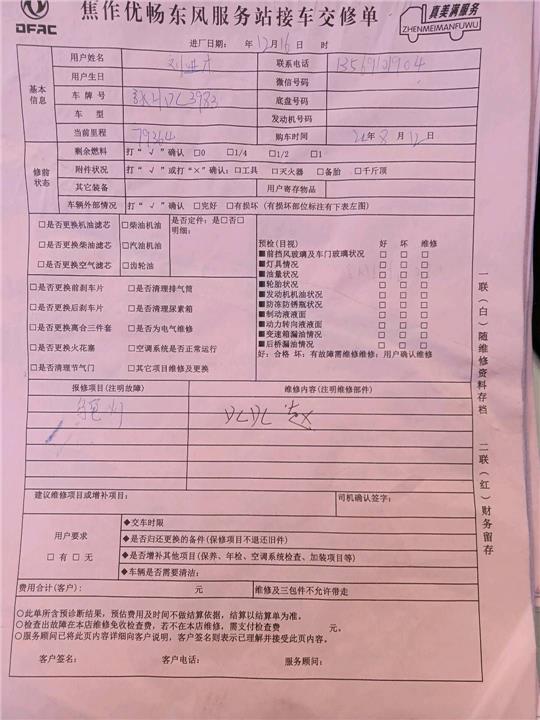 DFAC
焦作优畅东风服务站接车交修单
真美满服务
ZHENMEIMANFUWU
进厂日期： 年 12月 16日 时
基本信息
用户姓名 联系电话
用户生日 微信号码
车 牌 号 底盘号码
车 型 发动机号码
当前里程 79364 购车时间 年 8 月 12 日
修前状态
剩余燃料 打“√”确认 □0 □1/4 □1/2 □1
附件状况 打“√”或打“×”确认：□工具 □灭火器 □备胎 □千斤顶
其它装备 用户寄存物品
车辆外部情况 打“√”确认 □完好 □有损坏（有损坏部位标注有下表左图）
□是否更换机油滤芯 □柴油机油 是否定件：是□否□
明细：
□是否更换柴油滤芯 □汽油机油
□是否更换空气滤芯 □齿轮油
□是否更换前刹车片 □是否清理排气筒
□是否更换后刹车片 □是否清理尿素箱
□是否更换离合三件套 □是否为电气维修
□是否更换火花塞 □空调系统是否正常运行
□是否清理节气门 □其它项目维修及更换
预检（目视） 好 坏 维修
■前挡风玻璃及车门玻璃状况 □ □ □
■灯具情况 □ □ □
■油量状况 □ □ □
■轮胎状况 □ □ □
■发动机机油状况 □ □ □
■防冻防锈瓶状况 □ □ □
■制动液液面 □ □ □
■动力转向液液面 □ □ □
■变速箱漏油情况 □ □ □
■后桥漏油情况 □ □ □
好：合格 坏：有故障需维修维修：用户确认维修
报修项目（注明故障） 维修内容（注明维修部件）
DCDC
建议维修项目或增补项目： 司机确认签字：
用户要求
□ 有 □ 无
◆交车时限
◆是否归还更换的备件（保修项目不退还旧件）
◆是否增补其他项目（保养、年检、空调系统检查、加装项目等）
◆车辆是否需要清洁：
费用合计（客户）： 元 维修及三包件不允许带走
○此单所含预诊断结果，预估费用及时间不做结算依据，结算以结算单为准。
○检查出故障在本店维修免收检查费，若不在本店维修，需支付检查费 元。
○服务顾问已将此页内容详细向客户说明，客户签名则表示已理解并接受此页内容。
客户签名： 客户电话： 服务顾问：
一联（白）随维修资料存档
二联（红）财务留存